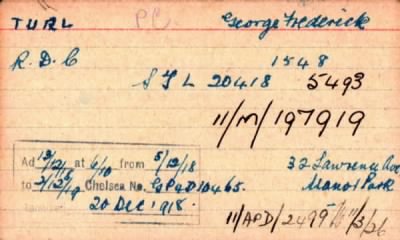 TURL P.C. George Frederick
R.D.C 1548
S Z L 20418 5493
11/M/197919
Ad at 6/10 from 5/12/18
to Chelsea No.
20 Dec. 1918.
32 Lawrence Ave
Manor Park
11/APD/2495 11/3/26